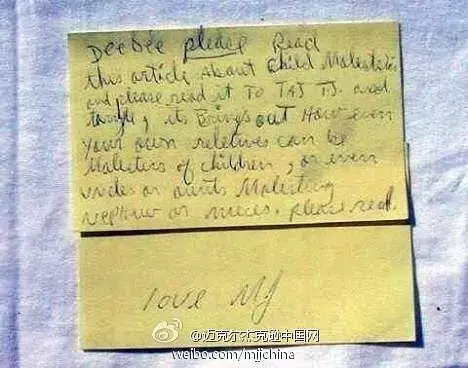 DeeDee please Read
this article about child Molestation
and please read it TO TAJ TJ. and
, its Brings out How even
your own reletives can be
Molestors of children, or even
uncles or aunts Molesting
nephew or nieces. please read.
love MJ
@迈克尔杰克逊中国网
weibo.com/mjjchina